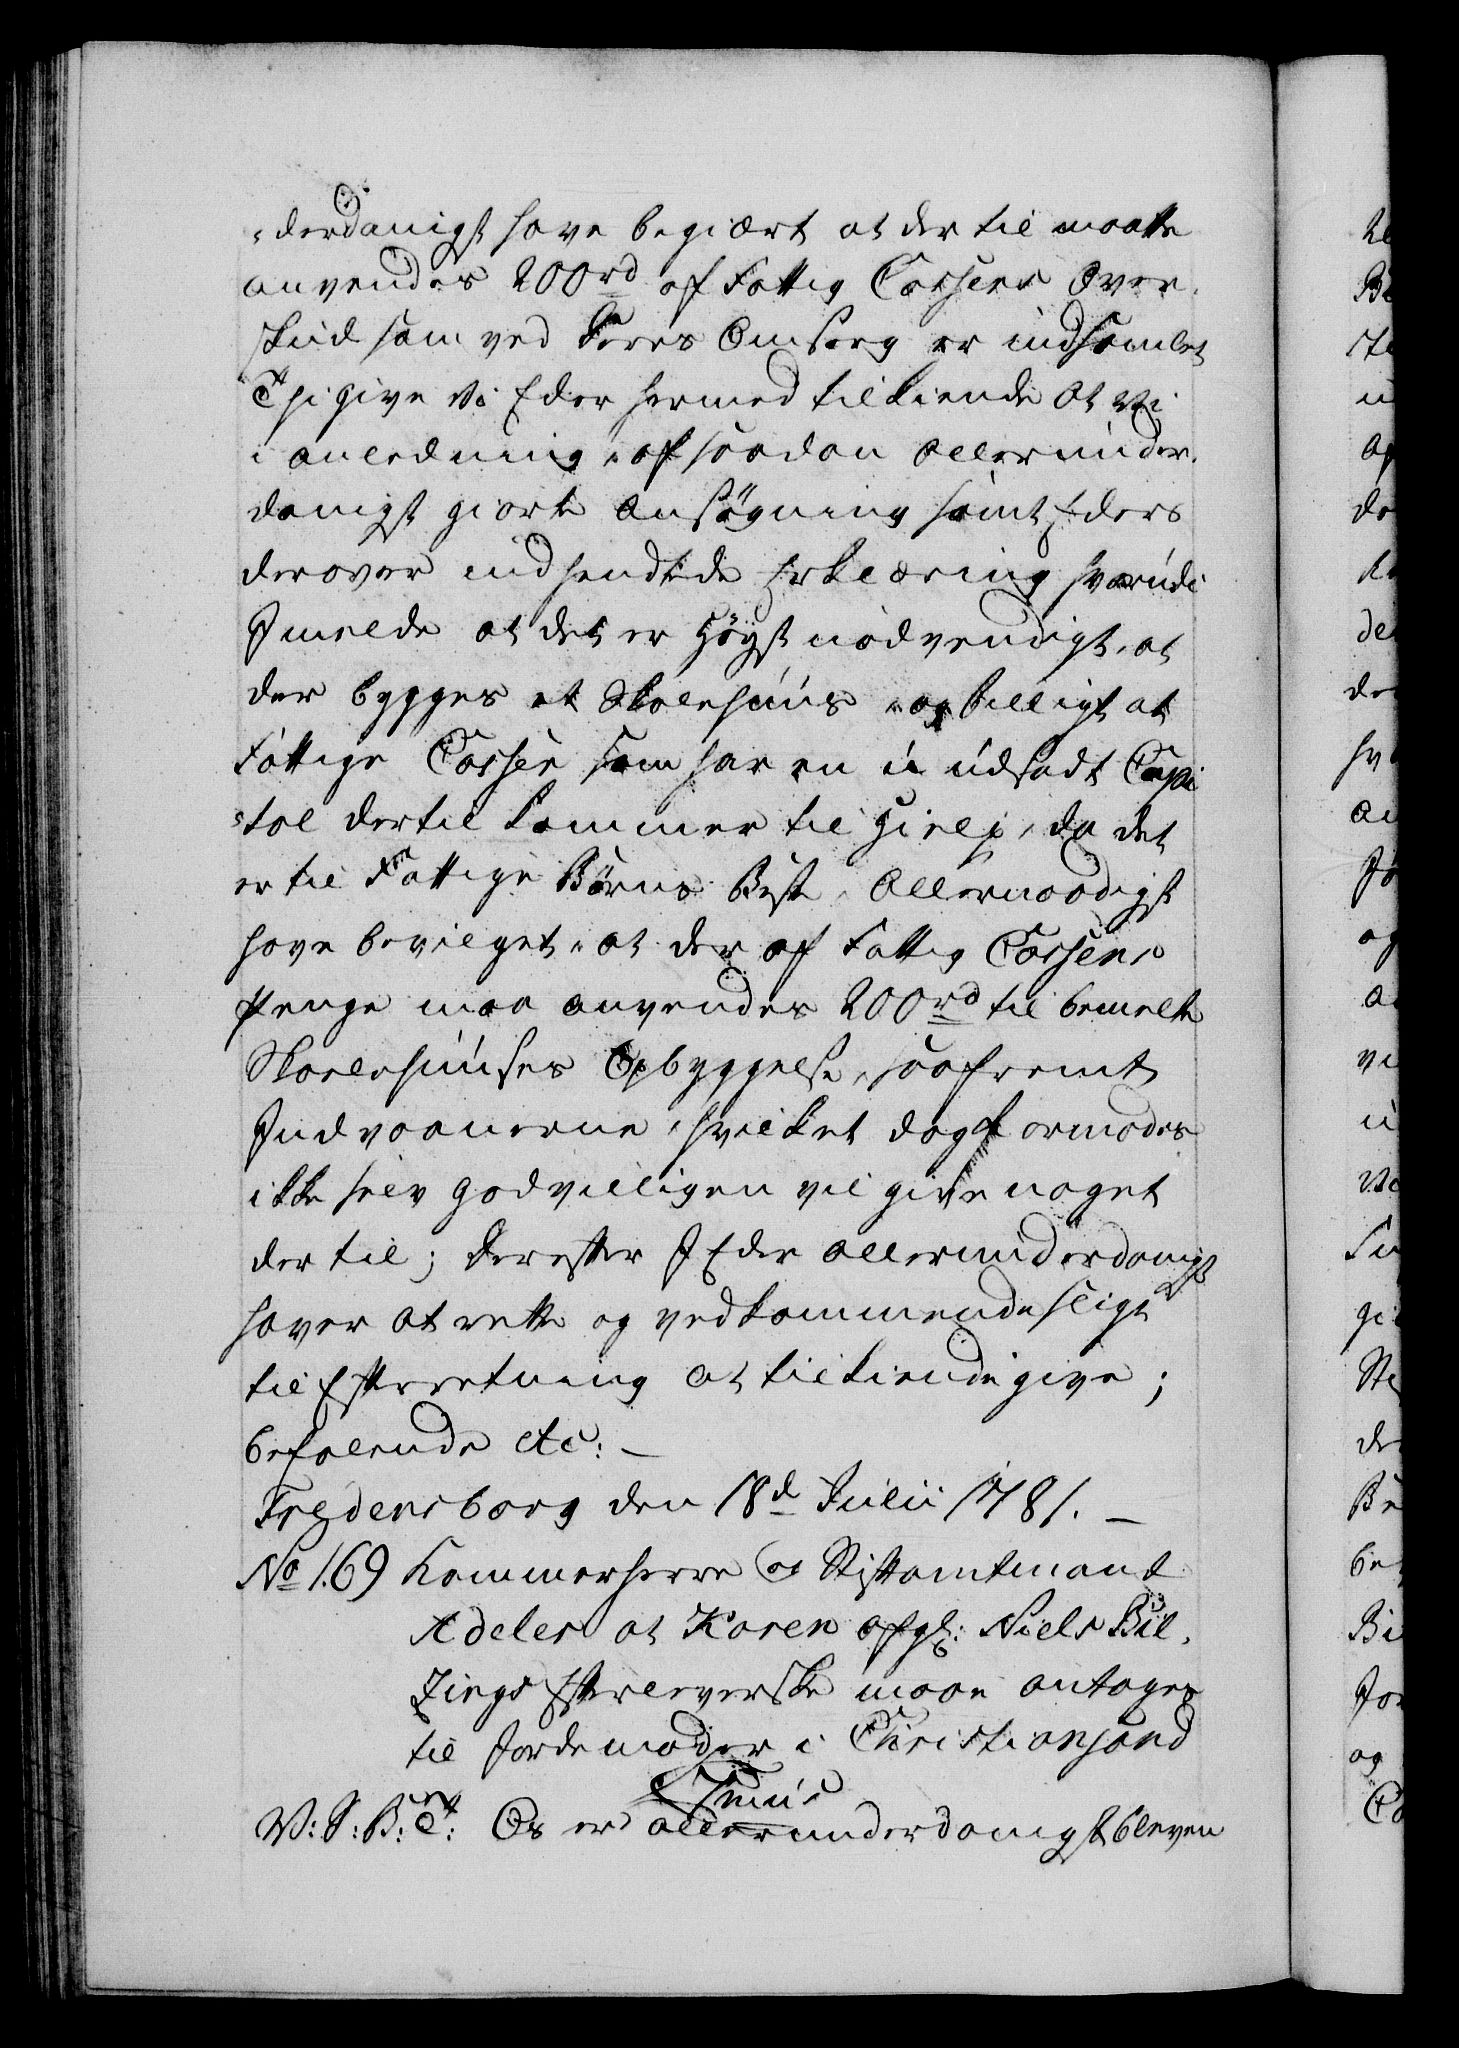 "derdanigst have begiært at der til maatte
anvendes 200rd af Fattig Cassens Over,
skud som ved deres Omsorg er indsamlet
Thi give Vi Eder hermed tilkiende at Vi
i anledning af saadan allerunder,
danigst giorte ansøgning samt Eders
derover indsendtede Erklæring hvorudi
I melde at det er høyst nødvendigt, at
der bygges et Skolehuus og billigt at
Fattige Cassen som har en u-udsadt Capi
"tal dertil kommer til Hielp, da det
er til Fattige Børns Beste, Allernaadigst
have bevilget, at der af Fattig Cassens
Penge maa anvendes 200rd til bemelte
Skolehuuses Opbyggelse, saafremt
Indvaanerne, hvilket dog formodes
ikke selv godvilligen vil give noget
der til; Derefter I Eder allerunderdanigst
haver at rette og vedkommende sligt
til Efterretning at tilkiendegive;
befalende etc: —
Fredensborg den 18d Julii 1781. —
No 169 Kammerherre og Stiftamtmand
Adeler at Karen afgl: Niels Bil,
Zings Efterleverske maae antages
til Jordemoder i Christiansand
V: S: B: Ct: Os er allerunderdanigst bleven